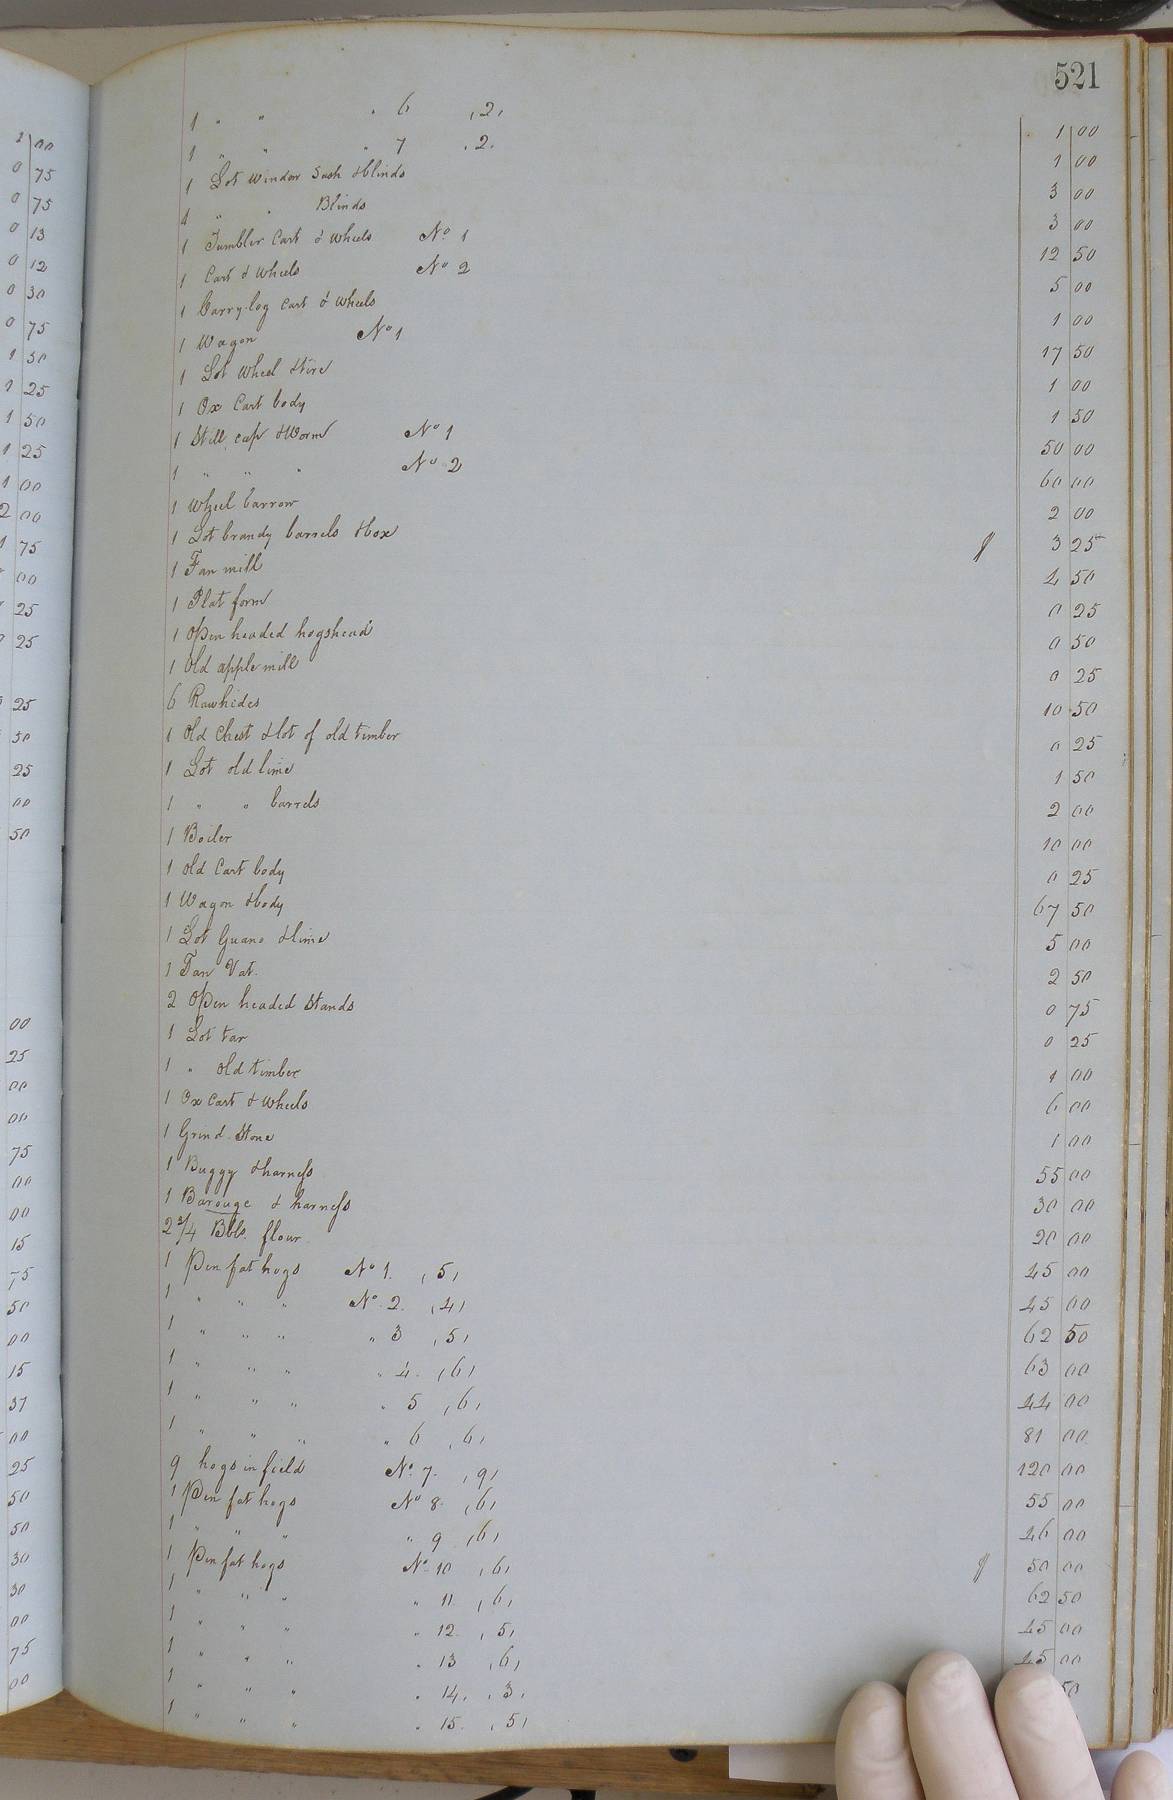 521
1 " " " 6 , 2, 1 00
1 " " " 7 , 2. 1 00
1 Lot window Sash & blinds 3 00
1 " " Blinds 3 00
1 Tumbler Cart & wheels No. 1 12 50
1 Cart & wheels No 2 5 00
1 Carry-log cart & wheels 1 00
1 Wagon No 1 17 50
1 Lot wheel & tire 1 00
1 Ox Cart body 1 50
1 Still, cap & Worm No 1 50 00
1 " " " No 2 60 00
1 Wheel barrow 2 00
1 Lot brandy barrels & box 3 25
1 Fan mill 4 50
1 Plat form 0 25
1 Open headed hogshead 0 50
1 Old apple mill 0 25
6 Rawhides 10 50
1 Old Chest & lot of old timber 0 25
1 Lot old lime 1 50
1 " " barrels 2 00
1 Boiler 10 00
1 Old Cart body 0 25
1 Wagon & body 67 50
1 Lot Guano & lime 5 00
1 Tan Vat. 2 50
2 Open headed Stands 0 75
1 Lot tar 0 25
1 " old timber 1 00
1 Ox Cart & wheels 6 00
1 Grind-Stone 1 00
1 Buggy & harness 55 00
1 Barouge & harness 30 00
2 3/4 Bbls. flour 20 00
1 Pen fat hogs No 1. , 5, 45 00
1 " " " No. 2. , 4, 45 00
1 " " " " 3 , 5, 62 50
1 " " " " 4. , 6, 63 00
1 " " " " 5 , 6, 44 00
1 " " " " 6 , 6, 81 00
9 hogs in field No. 7. , 9, 120 00
1 Pen fat hogs No 8. , 6, 55 00
1 " " " " 9 , 6, 46 00
1 Pen fat hogs No. 10 , 6, 50 00
1 " " " " 11. , 6, 62 50
1 " " " " 12. , 5, 45 00
1 " " " " 13 , 6, 45 00
1 " " " " 14, , 3, 50
1 " " " " 15. , 5,